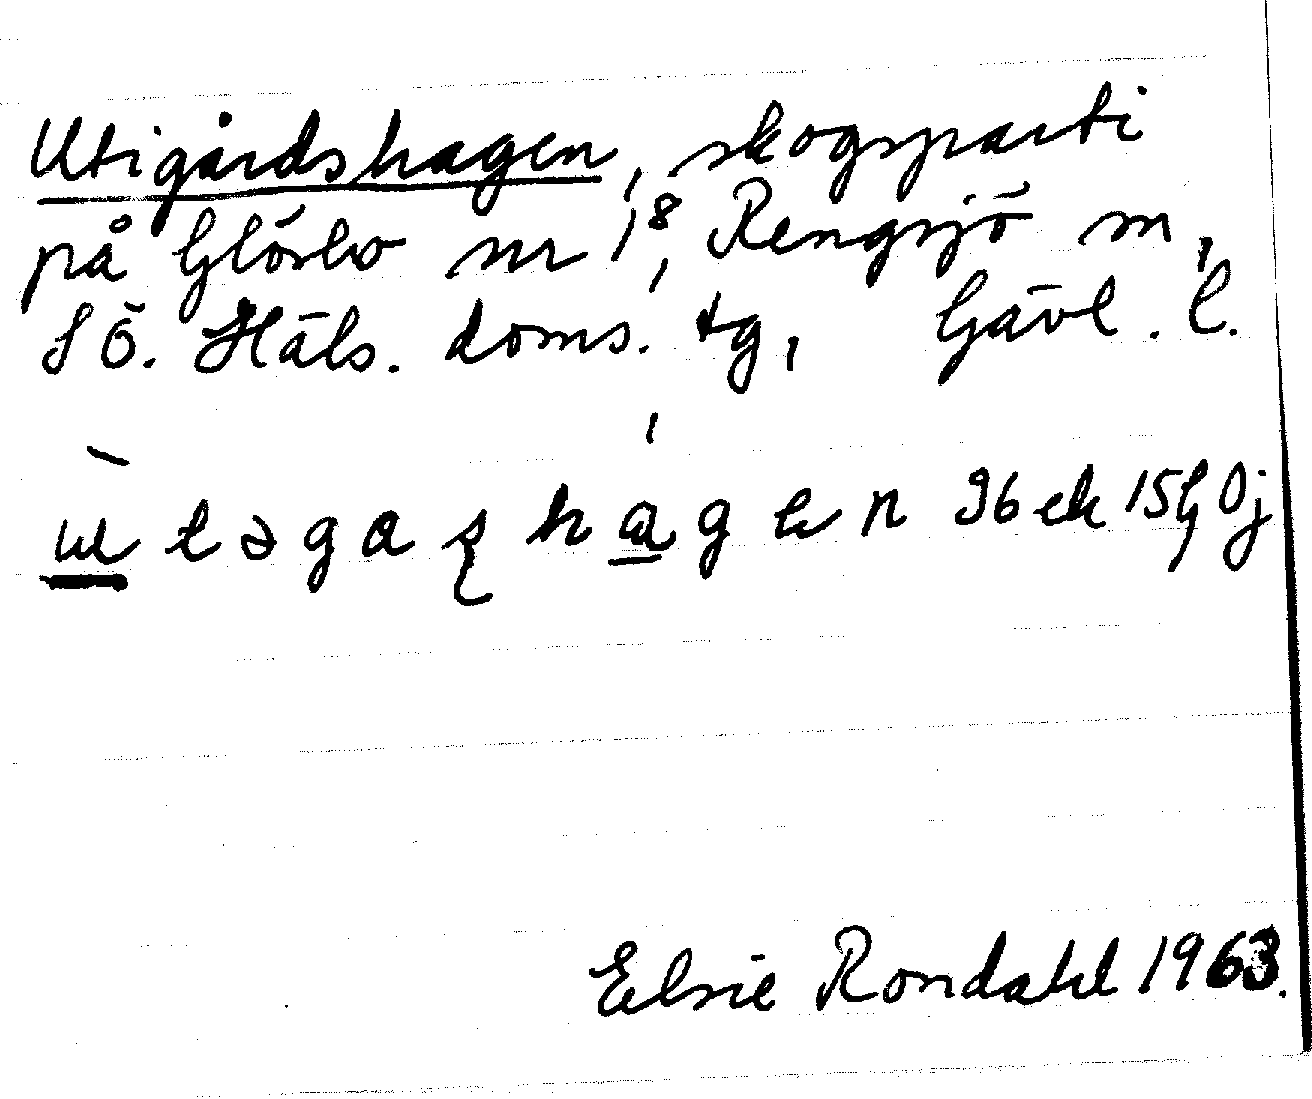 Utigårdshagen, skogsparti
på Glösbo nr 1⁸, Rengsjö sn,
SÖ. Häls. doms. tg, Gävl. l.
u t ə g a ʂ h a g e n 36 ek 15G Oj
Elsie Rondahl 1963.